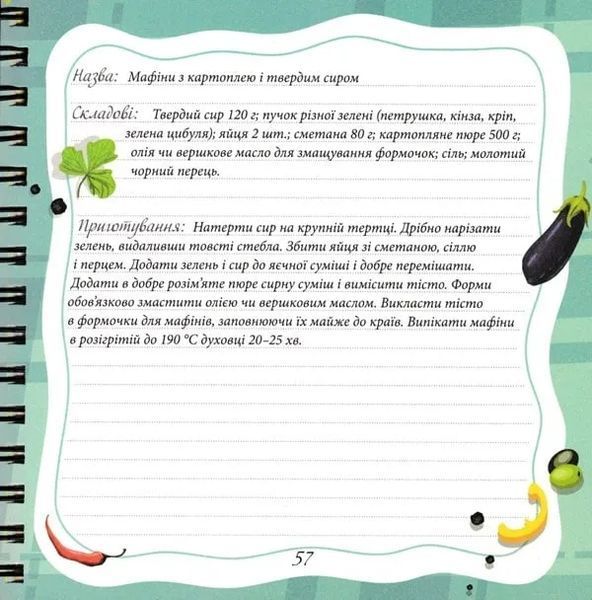 Назва: Мафіни з картоплею і твердим сиром
Складові: Твердий сир 120 г; пучок різної зелені (петрушка, кінза, кріп,
зелена цибуля); яйця 2 шт.; сметана 80 г; картопляне пюре 500 г;
олія чи вершкове масло для змащування формочок; сіль; молотий
чорний перець.
Приготування: Натерти сир на крупній тертці. Дрібно нарізати
зелень, видаливши товсті стебла. Збити яйця зі сметаною, сіллю
і перцем. Додати зелень і сир до яєчної суміші і добре перемішати.
Додати в добре розім'яте пюре сирну суміш і вимісити тісто. Форми
обов'язково змастити олією чи вершковим маслом. Викласти тісто
в формочки для мафінів, заповнюючи їх майже до країв. Випікати мафіни
в розігрітій до 190 °С духовці 20–25 хв.
57